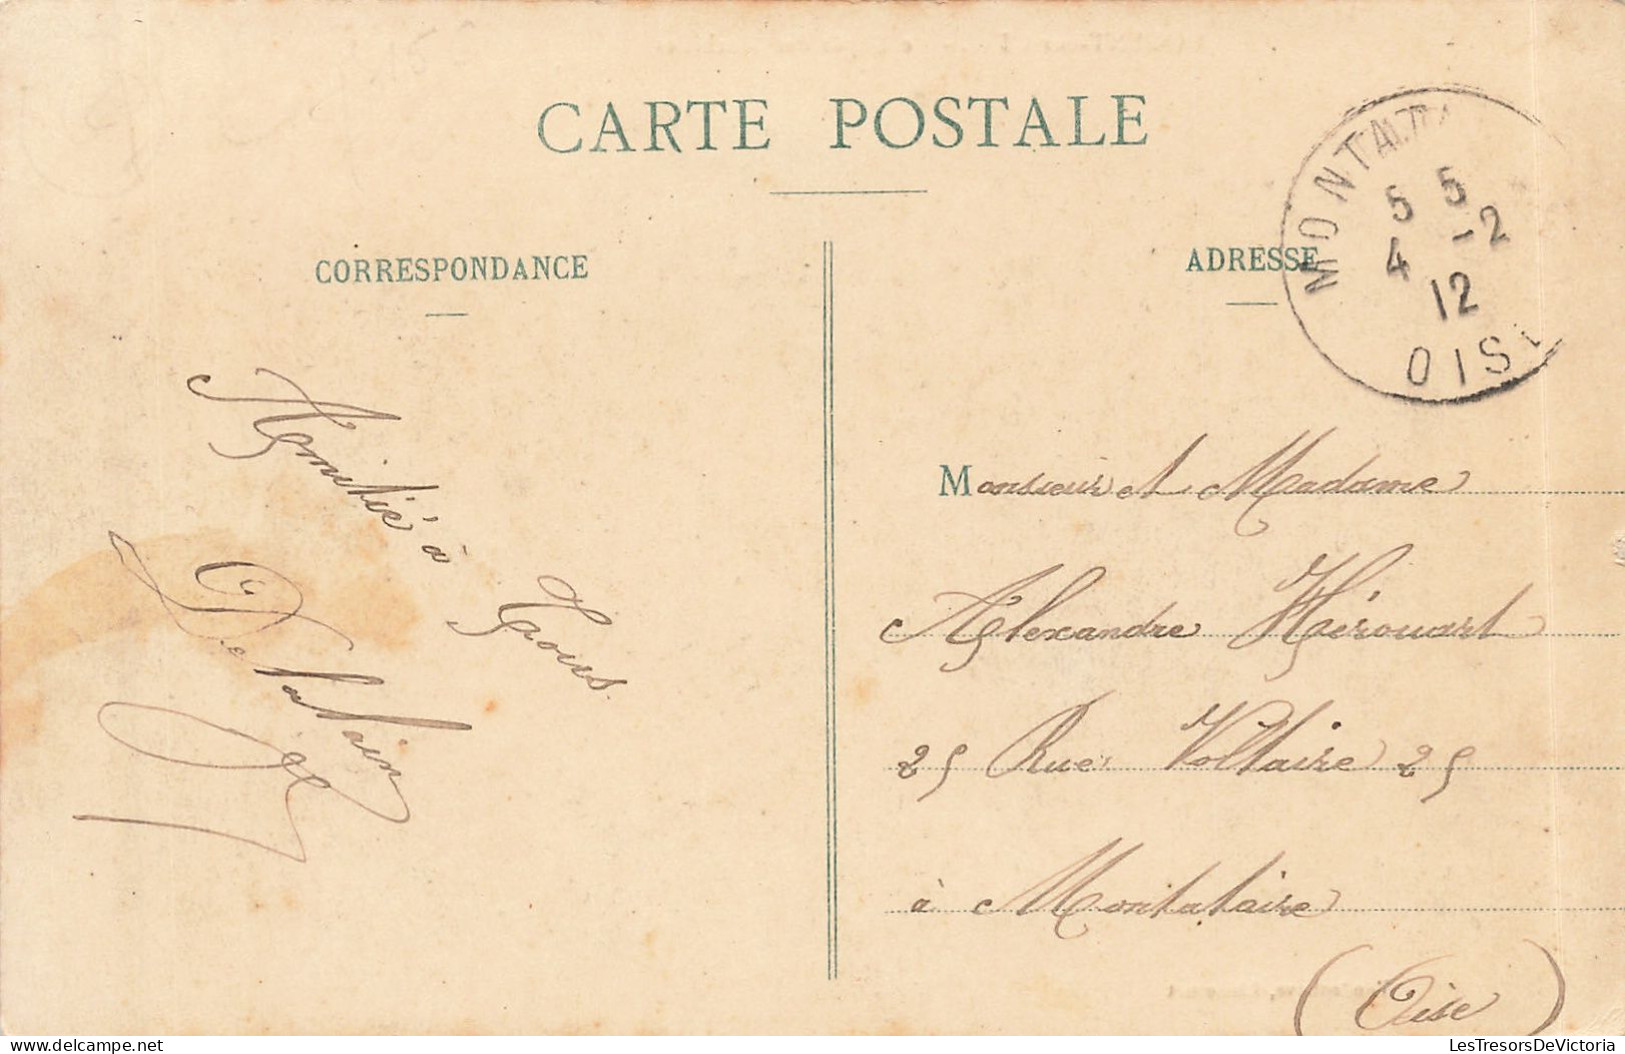 CARTE POSTALE
CORRESPONDANCE
ADRESSE
MONTATA
5 5
4 -2
12
OISE
Amitié à Tous
Delatain
Monsieur et Madame
Alexandre Hérouart
25 Rue Voltaire 25
à Montataire
(Oise)
LesTresorsDeVictoria